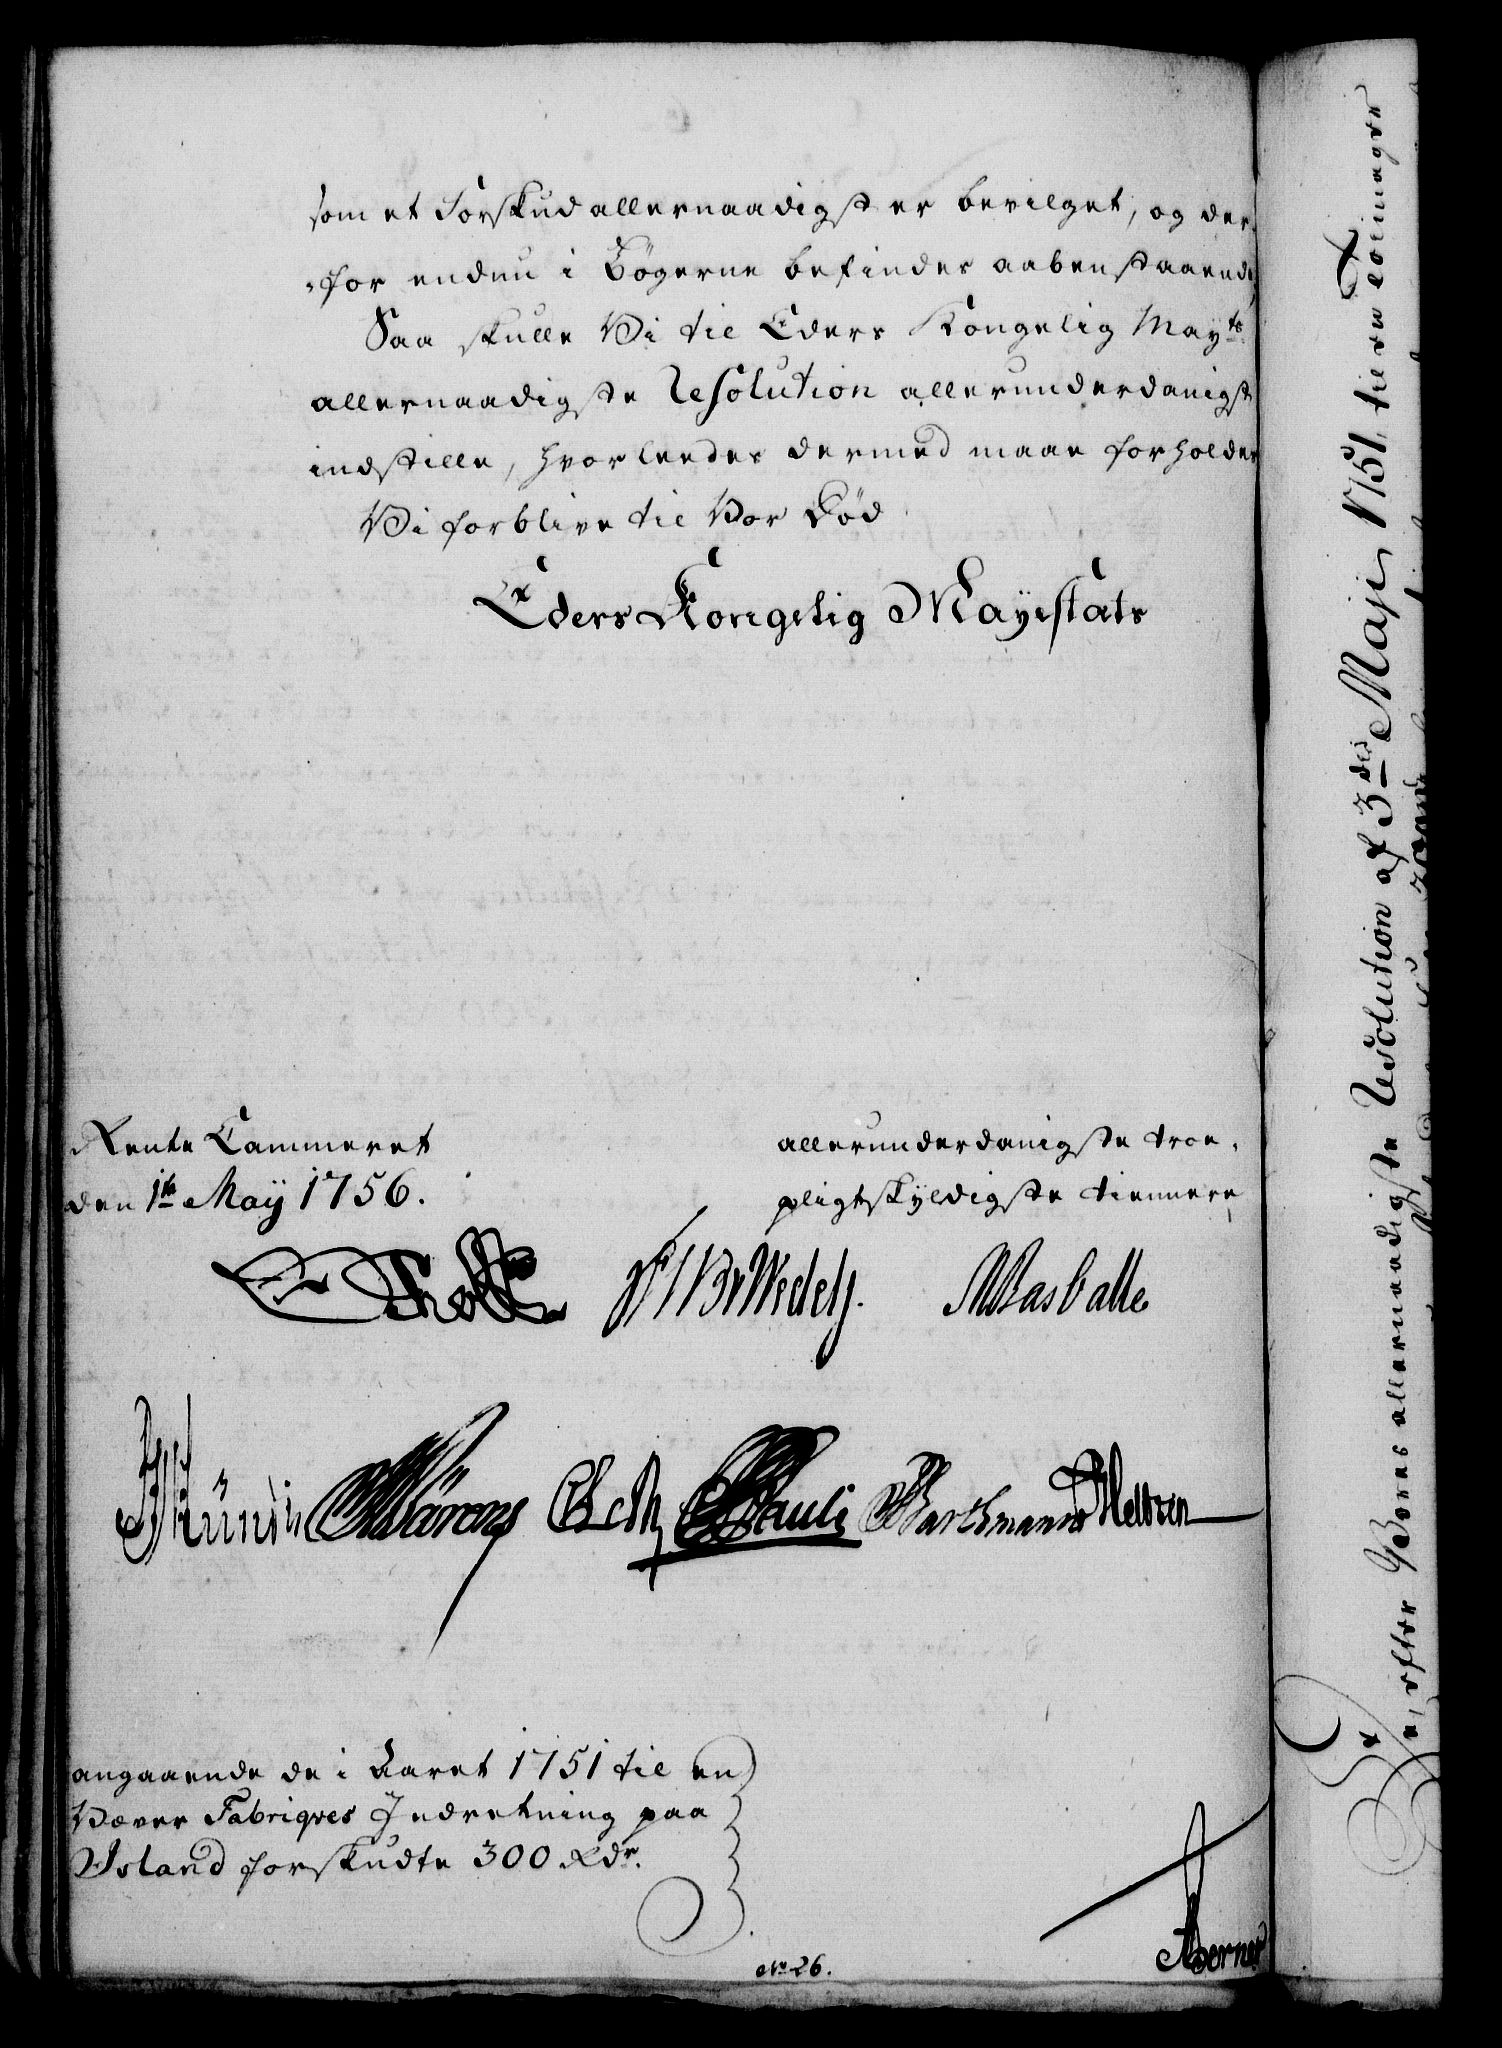 som et Forskud allernaadigst er bevilget, og der-
-for endnu i Bögerne befindes aabenstaaende,
Saa skulle Vi til Eders Kongelig Mayts
allernaadigste Resolution allerunderdanigst
indstille, hvorleedes dermed maae forholdes
Vi forblive til Vor Död
Eders Kongelig Mayestäts
Rente Cammeret
den 1te Maÿ 1756.
allerunderdanigste troe,
pligtskÿldigste tiennere
Holst Wedel Basballe
Pauli Barthmann
angaaende de i Aaret 1751 til en
Væver Fabriqves Indretning paa
Island forskudte 300 Rdr.
No 26.
efter Vores allernaadigste Resolution af 3die Maji 1751, til en